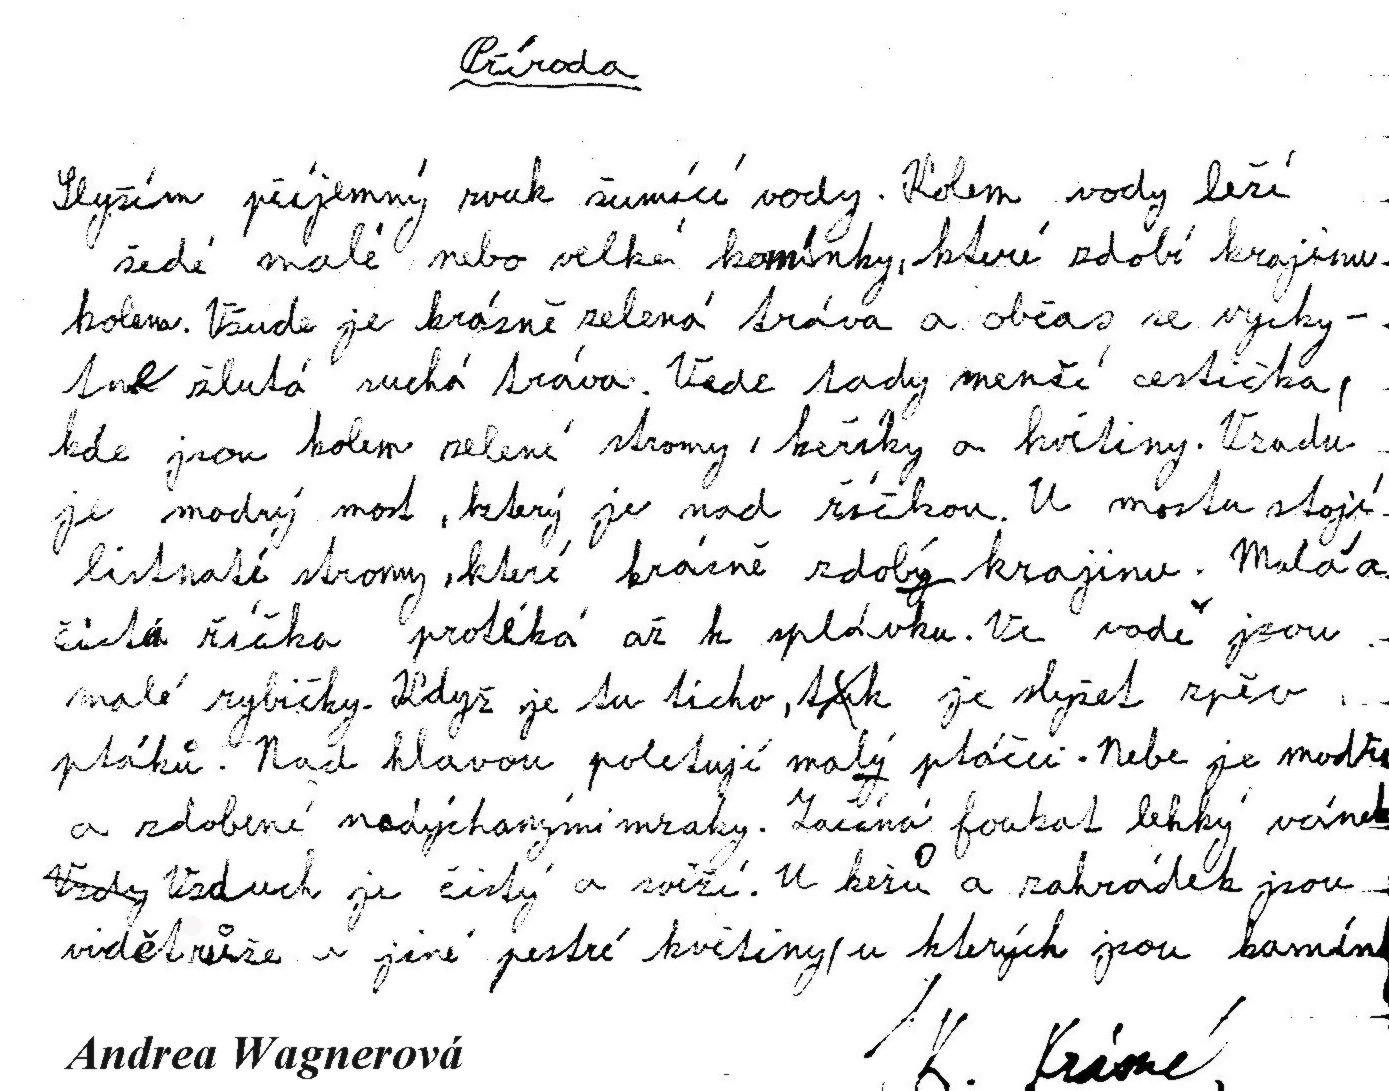 Příroda
Slyším příjemný zvuk šumící vody. Kolem vody leží
šedé malé nebo velké kamínky, které zdobí krajinu
kolem. Všude je krásně zelená tráva a občas se vycky-
tne žlutá suchá tráva. Vede tady menší cestička,
kde jsou kolem zelené stromy, keříky a květiny. Vzadu
je modrý most, který je nad říčkou. U mostu stojí
listnaté stromy, které krásně zdobý krajinu. Malá a
čistá říčka protéká až k splávku. Ve vodě jsou
malé rybičky. Když je tu ticho, tak je slyšet zpěv
ptáků. Nad hlavou poletují malý ptáčci. Nebe je modře
a zdobené nadýchanými mraky. Začíná foukat lehký vánek
Vzdy Vzduch je čistý a svěží. U keřů a zahrádek jsou
vidět růže a jiné pestré květiny, u kterých jsou kamínk
K. Krásné
Andrea Wagnerová